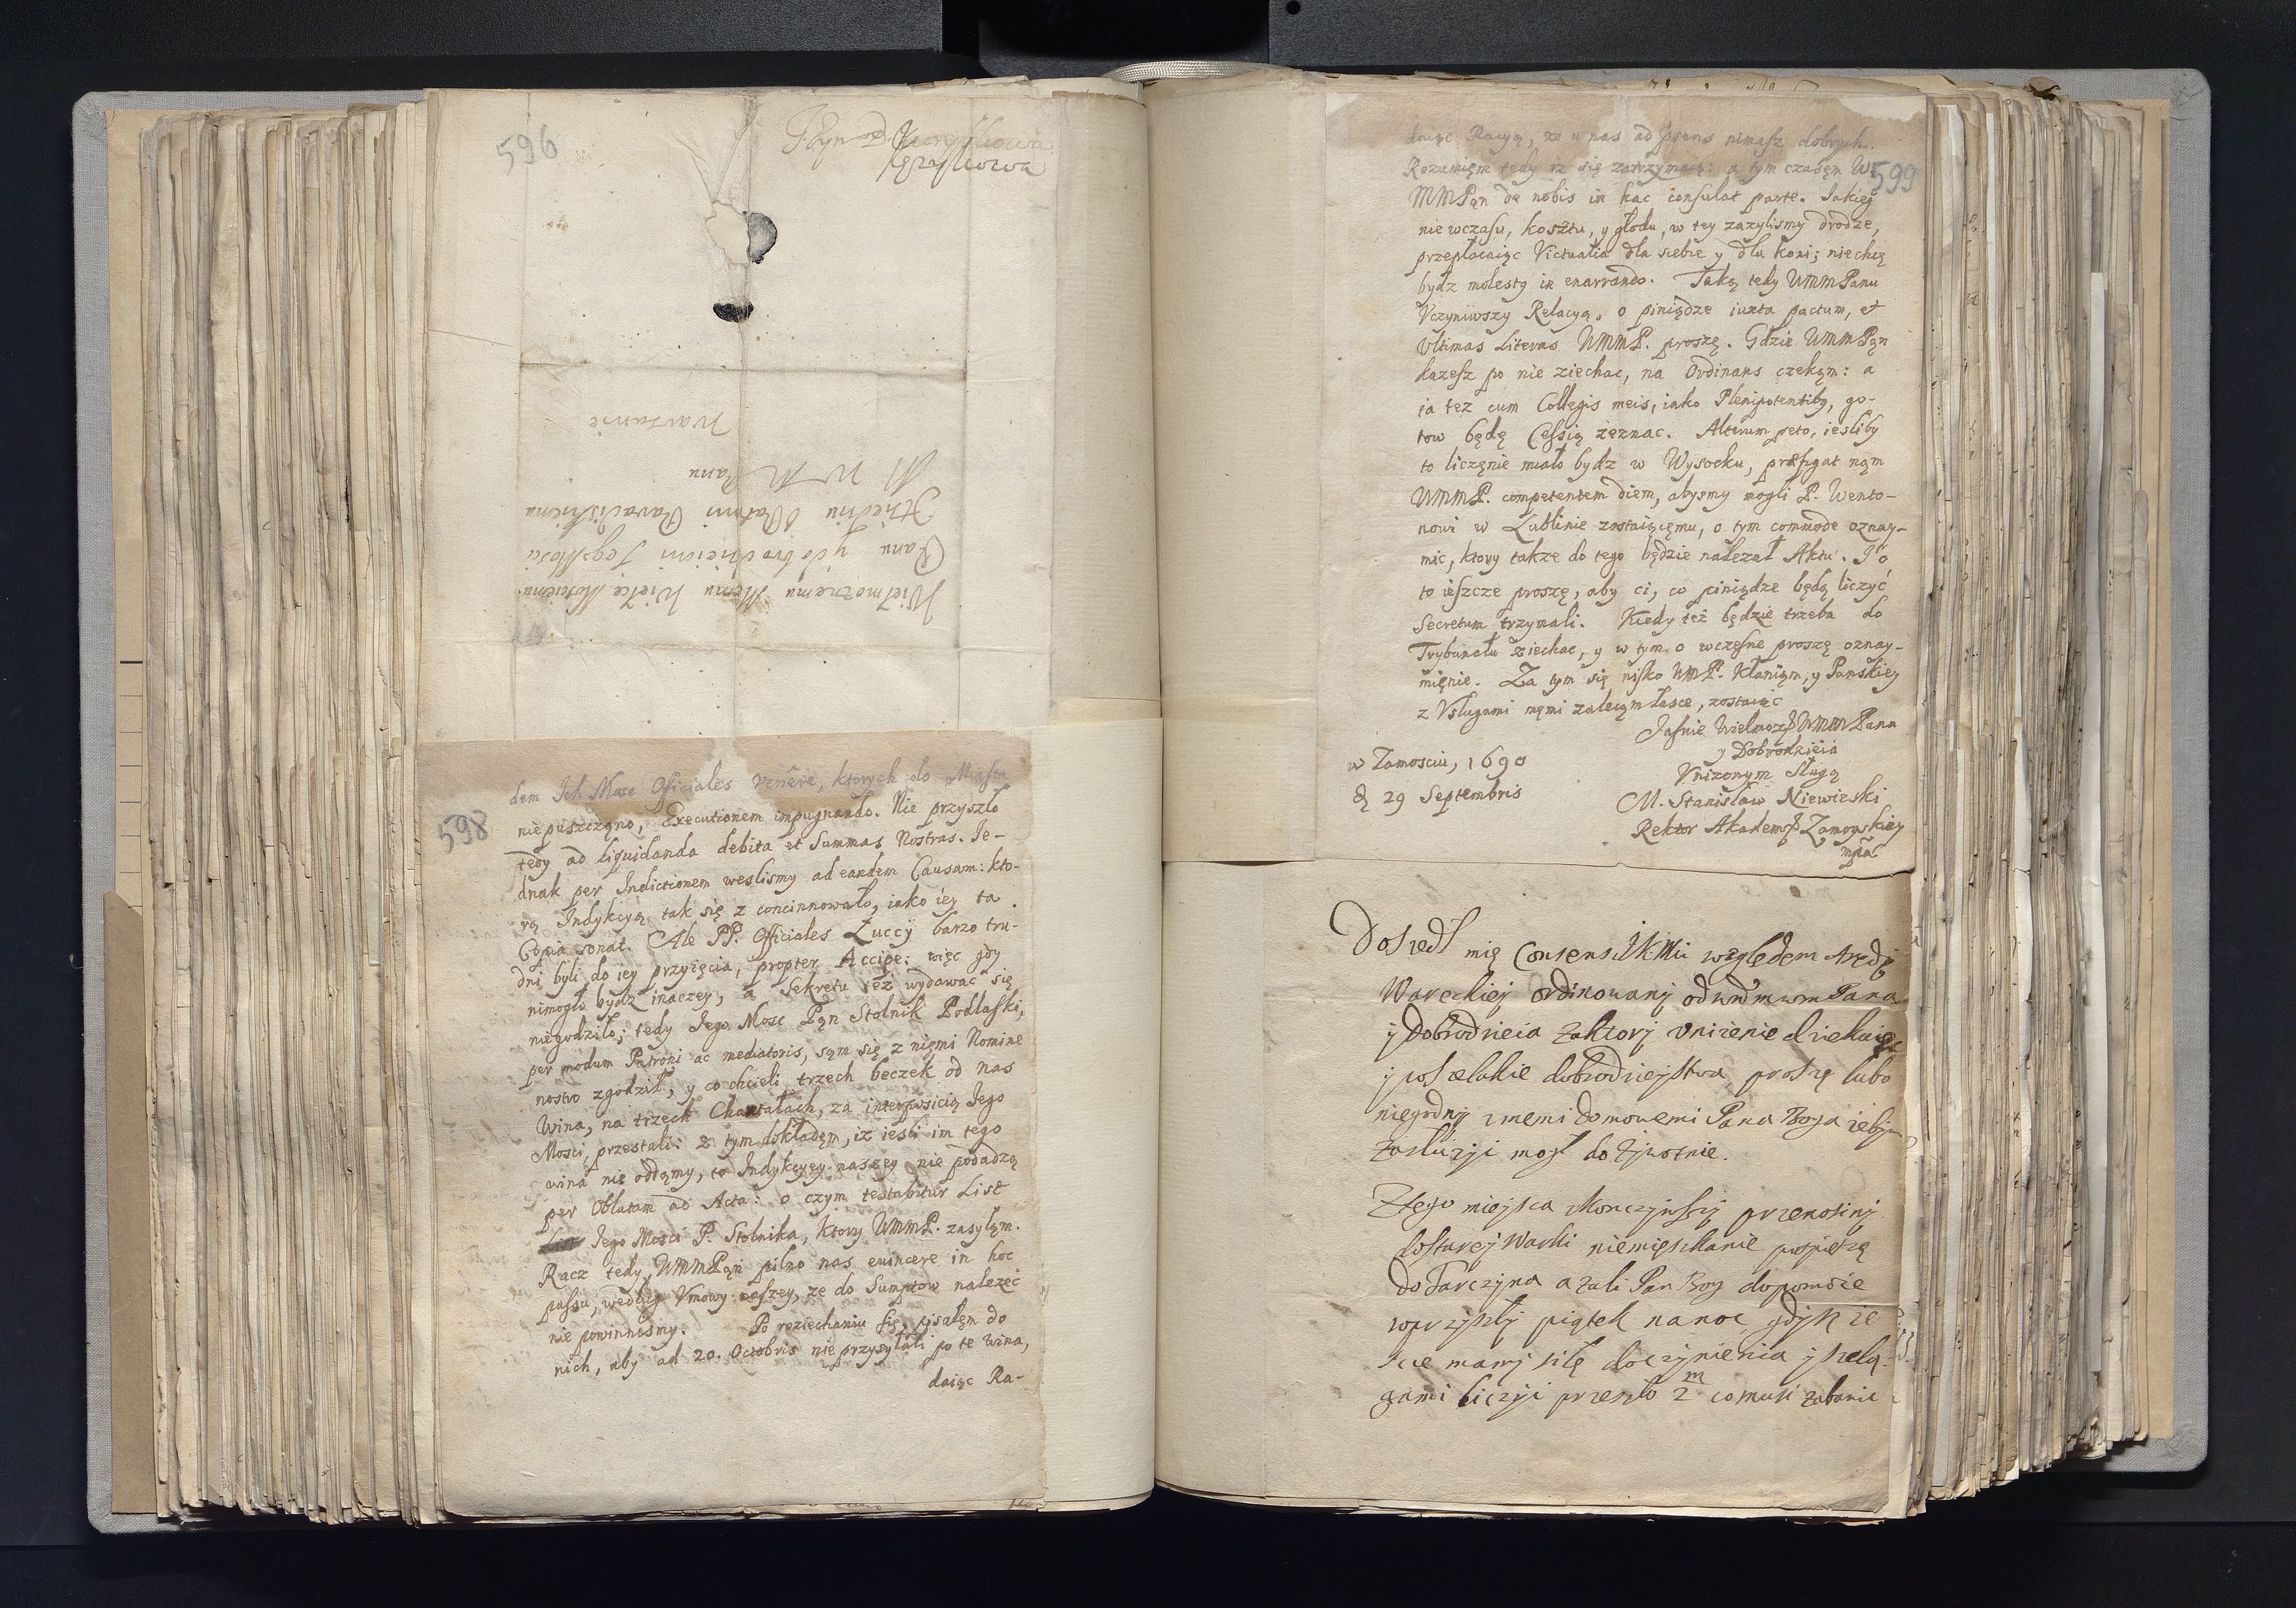 596
Wielmoznemu Memu Wielce Mosciemu
Panu y dobrodzieiowi JegoMosci
Panu
M W M Panu
Warszawie
598
dem Ich Mosc Officiales venere, ktorych do Miasta
niepuszczono, Executionem impugnando. Nie przyszło
tedy ad liquidanda debita et Summas Nostras. Je-
dnak per Indictionem weslismy ad eandem Causam: kto-
rą Indykcyą tak się z concinnowało, iako iey ta
Copia sonat. Ale PP. Officiales Łuccy barzo tru-
dni byli do iey przyięcia, propter Accipe: więc gdy
nimogło bydz inaczey, a Sekretu też wydawać się
niegodziło; tedy Jego Mosc Pąn Stolnik Podlaski,
per modum Patroni ac mediatoris, sąm się z nięmi Nomine
nostro zgodził, y co chcieli trzech beczek od nas
Wina, na trzech Chantałach, za interposicią Jego
Mosci, przestali: z tym dokładęm, iz iesli im tego
wina nie oddąmy, to Indykcyey naszey nie podadzą
per Oblatam ad Acta: o czym testabitur List
Jego Mosci P. Stolnika, ktory WMMP. zasyłąm.
Racz tedy WMMPąn pilno nas euincere in hoc
passu, według Vmowy naszey, ze do Sumptow nalezec
nie powinnismy. Po roziechaniu się, pisałęm do
nich, aby ad 20. Octobris nie przysyłali po te wina,
daiąc Ra-
599
daiąc Racyą, ze u nas ad præsens nimasz dobrych.
Rozumięm tedy iz się zatrzymaią: a tym czasęm W
MMPąn de nobis in hac consulat parte. Jakieg
nie wczasu, kosztu, y głodu, w tey zazylismy drodze,
przepłacaiąc Victualia dla siebie y dla koni; niechcę
bydz molesty in enarrando. Taką tedy WMMPanu
Vczyniwszy Relacyą, o piniądze iuxta pactum, et
Vltimas Literas WMMP. proszę. Gdzie WMMPąn
kazesz po nie ziechac, na Ordinans czekąm: a
ia tez cum Collegis meis, iako Plenipotentibꝫ, go-
tow będę Cessią zeznac. Alterum peto, iesliby
to liczęnie miało bydz w Wysocku, præfigat nąm
WMMP. competentem diem, abysmy mogli P. Wento-
nowi w Lublinie zostaiącęmu, o tym commode oznay-
mic, ktory takze do tego będzie nalezał Aktu. J o
to ieszcze proszę, aby ci, co piniądze będą liczyć
Secretum trzymali. Kiedy też będzie trzeba do
Trybunału ziechac, y w tym o wczęsne proszę oznay-
mięnie. Za tym się nisko WMP. Kłaniąm, y Pańskiey
z Vsługami męmi zalecąm łasce, zostaiąc
Jasnie Wielmoz WMM Pana
y Dobrodzieia
Vnizonym Sługą
M. Stanisław Niewieski
Rektor Akademy Zamoyskiey
mpia
w Zamosciu, 1690
D 29 Septembris
Doszedł mię Consens JKMci względem Arędy
Wareckiey ordinowany od wm wm Pana
y Dobrodzieia za ktory vnizenie dziekuię
y wszelakie dobrodzieystwa, proszę lubo
niegodny z memi domowemi Pana Boga zebym
zasłuzyc mogł do zywotnie.
Z tego mieysca skonczywszy przenosiny
do starey Warki niemięszkanie pospieszę
do Tarczyna a zali Pan Bog dopomoze
w przyszły piątek na noc gdysz ze
sce mamy siłę do czynienia y szelą-
gami liczyc przeszło 2 m co musi zabawic